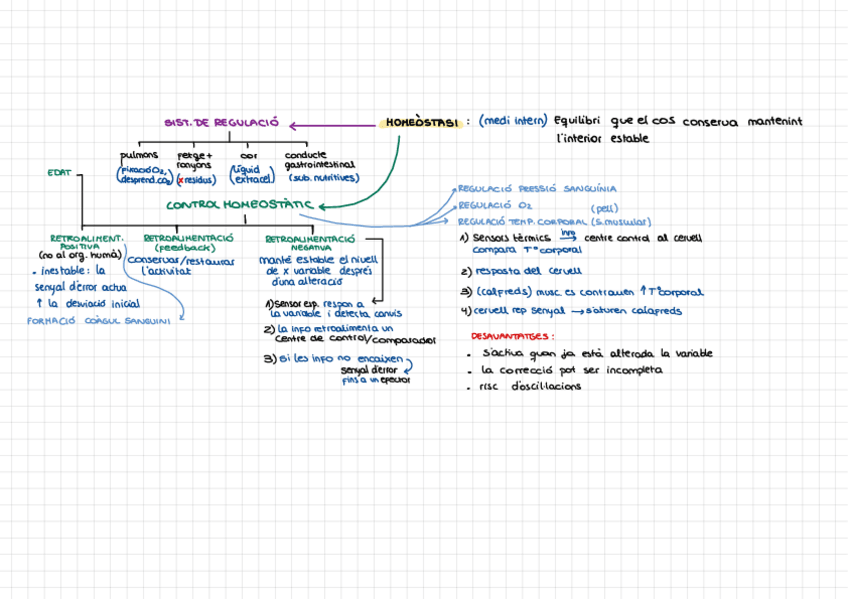 SIST. DE REGULACIÓ
HOMEÒSTASI : (medi intern) Equilibri que el cos conserva mantenint
l'interior estable
pulmons
(fixació O2,
desprend. CO2)
fetge +
ronyons
(x residus)
cor
(líquid
extracel)
conducte
gastrointestinal
(sub. nutritives)
EDAT
CONTROL HOMEOSTÀTIC
REGULACIÓ PRESSIÓ SANGUÍNIA
REGULACIÓ O2 (pell)
REGULACIÓ TEMP. CORPORAL (S. muscular)
RETROALIMENT.
POSITIVA
(no al org. humà)
• inestable: la
senyal d'error actua
↑ la desviació inicial
FORMACIÓ COÀGUL SANGUINI
RETROALIMENTACIÓ
(feedback)
conservar/restaurar
l'activitat
RETROALIMENTACIÓ
NEGATIVA
manté estable el nivell
de x variable després
d'una alteració
1) Sensor esp. respon a
la variable i detecta canvis
2) la info retroalimenta un
centre de control/comparador
3) si les info no encaixen
senyal d'error
fins a un efector
1) Sensors tèrmics info → centre control al cervell
compara Tª corporal
2) resposta del cervell
3) (calfreds) musc. es contrauen ↑ Tª corporal
4) cervell rep senyal → s'aturen calafreds
DESAVANTATGES :
• s'actua quan ja està alterada la variable
• la correcció pot ser incompleta
• risc d'oscil·lacions